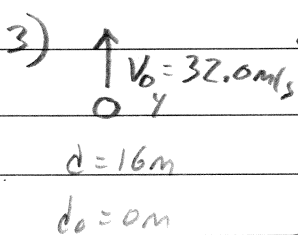 3)
V₀ = 32.0 m/s
y
d = 16m
d₀ = 0m